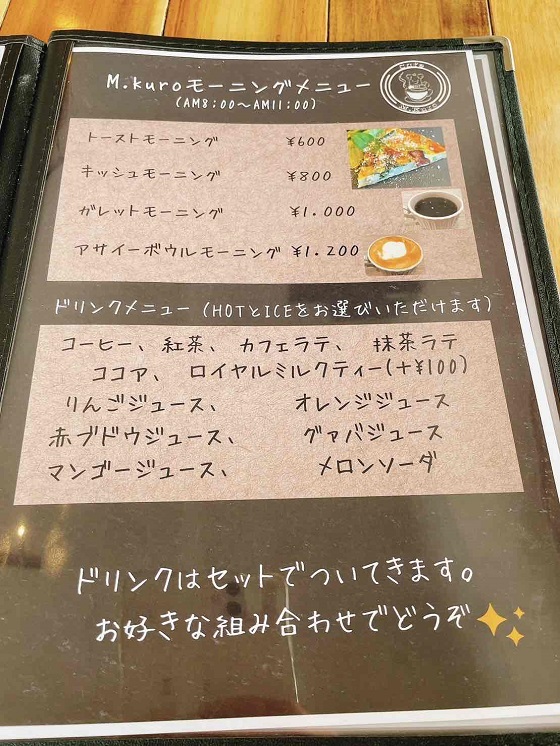 M.kuroモーニングメニュー
(AM8:00～AM11:00)
トーストモーニング ¥600
キッシュモーニング ¥800
ガレットモーニング ¥1.000
アサイーボウルモーニング ¥1.200
ドリンクメニュー (HOTとICEをお選びいただけます)
コーヒー、紅茶、カフェラテ、抹茶ラテ
ココア、ロイヤルミルクティー(+¥100)
りんごジュース、オレンジジュース
赤ブドウジュース、グァバジュース
マンゴージュース、メロンソーダ
ドリンクはセットでついてきます。
お好きな組み合わせでどうぞ✨